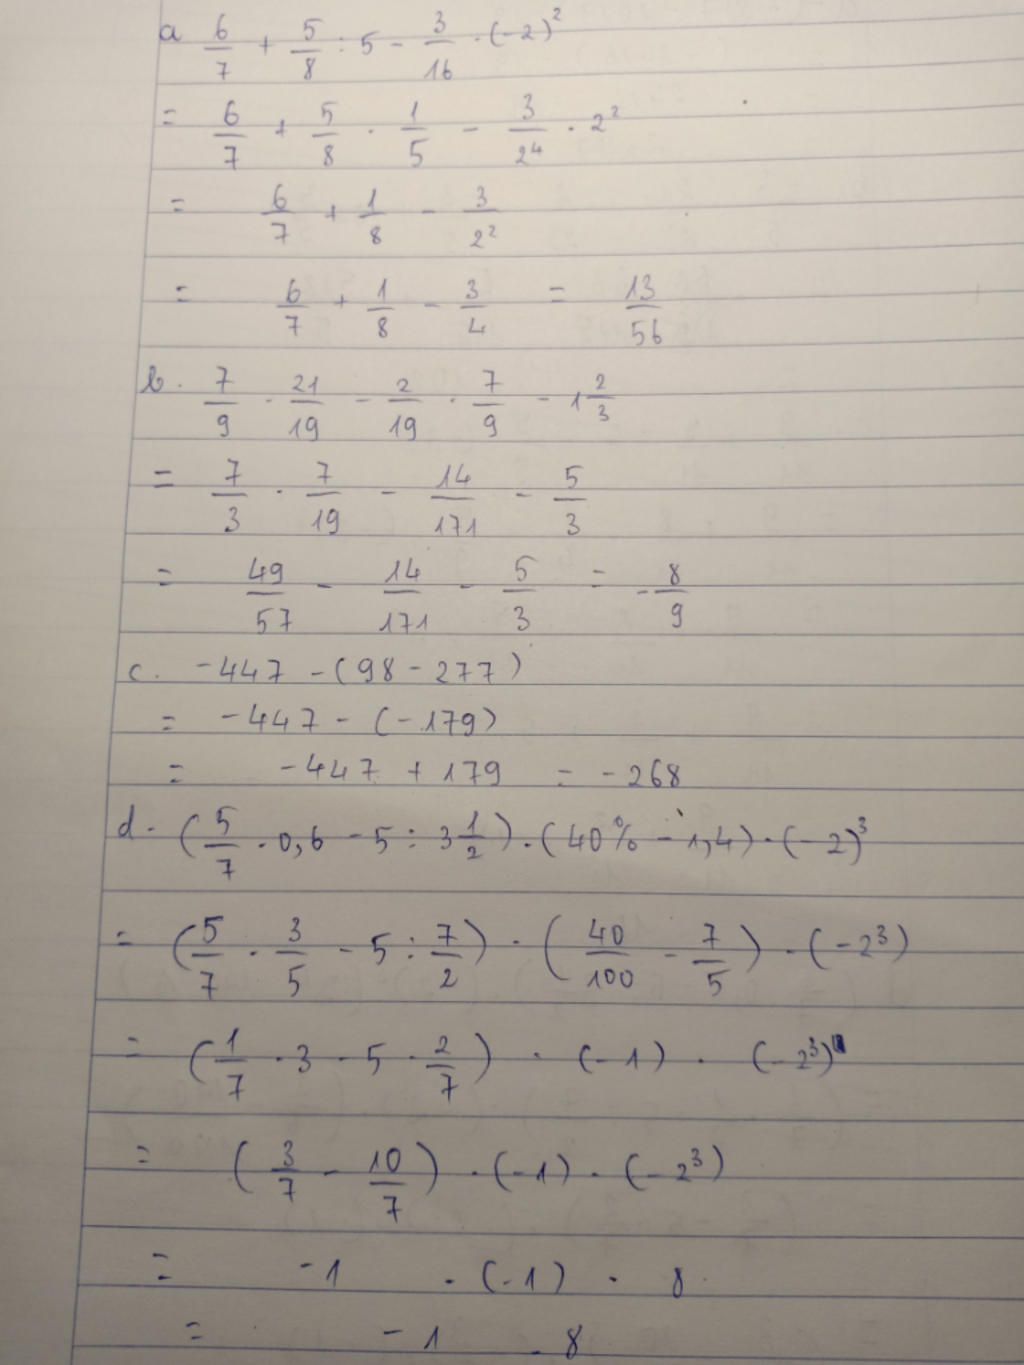 a 6/7 + 5/8 : 5 - 3/16 · (-2)²
= 6/7 + 5/8 · 1/5 - 3/2⁴ · 2²
= 6/7 + 1/8 - 3/2²
= 6/7 + 1/8 - 3/4 = 13/56
b. 7/9 · 21/19 - 2/19 · 7/9 - 1 2/3
= 7/3 · 7/19 - 14/171 - 5/3
= 49/57 - 14/171 - 5/3 = -8/9
c. -447 - (98 - 277)
= -447 - (-179)
= -447 + 179 = -268
d. (5/7 · 0,6 - 5 : 3 1/2) · (40% - 1,4) · (-2)³
= (5/7 · 3/5 - 5 : 7/2) · (40/100 - 7/5) · (-2³)
= (1/7 · 3 - 5 · 2/7) · (-1) · (-2³)
= (3/7 - 10/7) · (-1) · (-2³)
= -1 · (-1) · 8
= -1 . 8